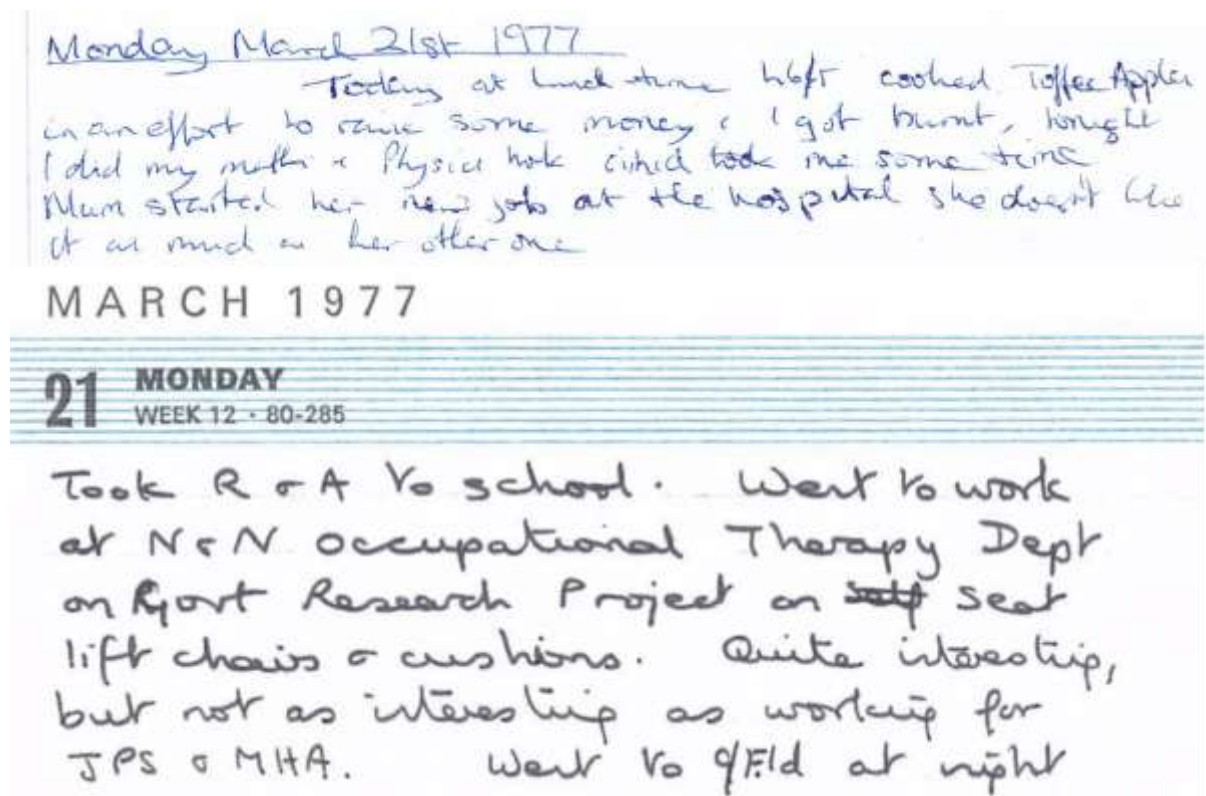 Monday March 21st 1977
Today at lunch-time cooked Toffee Apples
in an effort to raise some money & I got burnt, tonight
I did my maths & Physics took me some time
Mum started her new job at the hospital she doesn't like
it as much as her other one
MARCH 1977
21 MONDAY
WEEK 12 · 80-285
Took R & A to school. Went to work
at N & N Occupational Therapy Dept
on Govt Research Project on seat
lift chairs & cushions. Quite interesting,
but not as interesting as working for
JPS & MHA. Went to at night